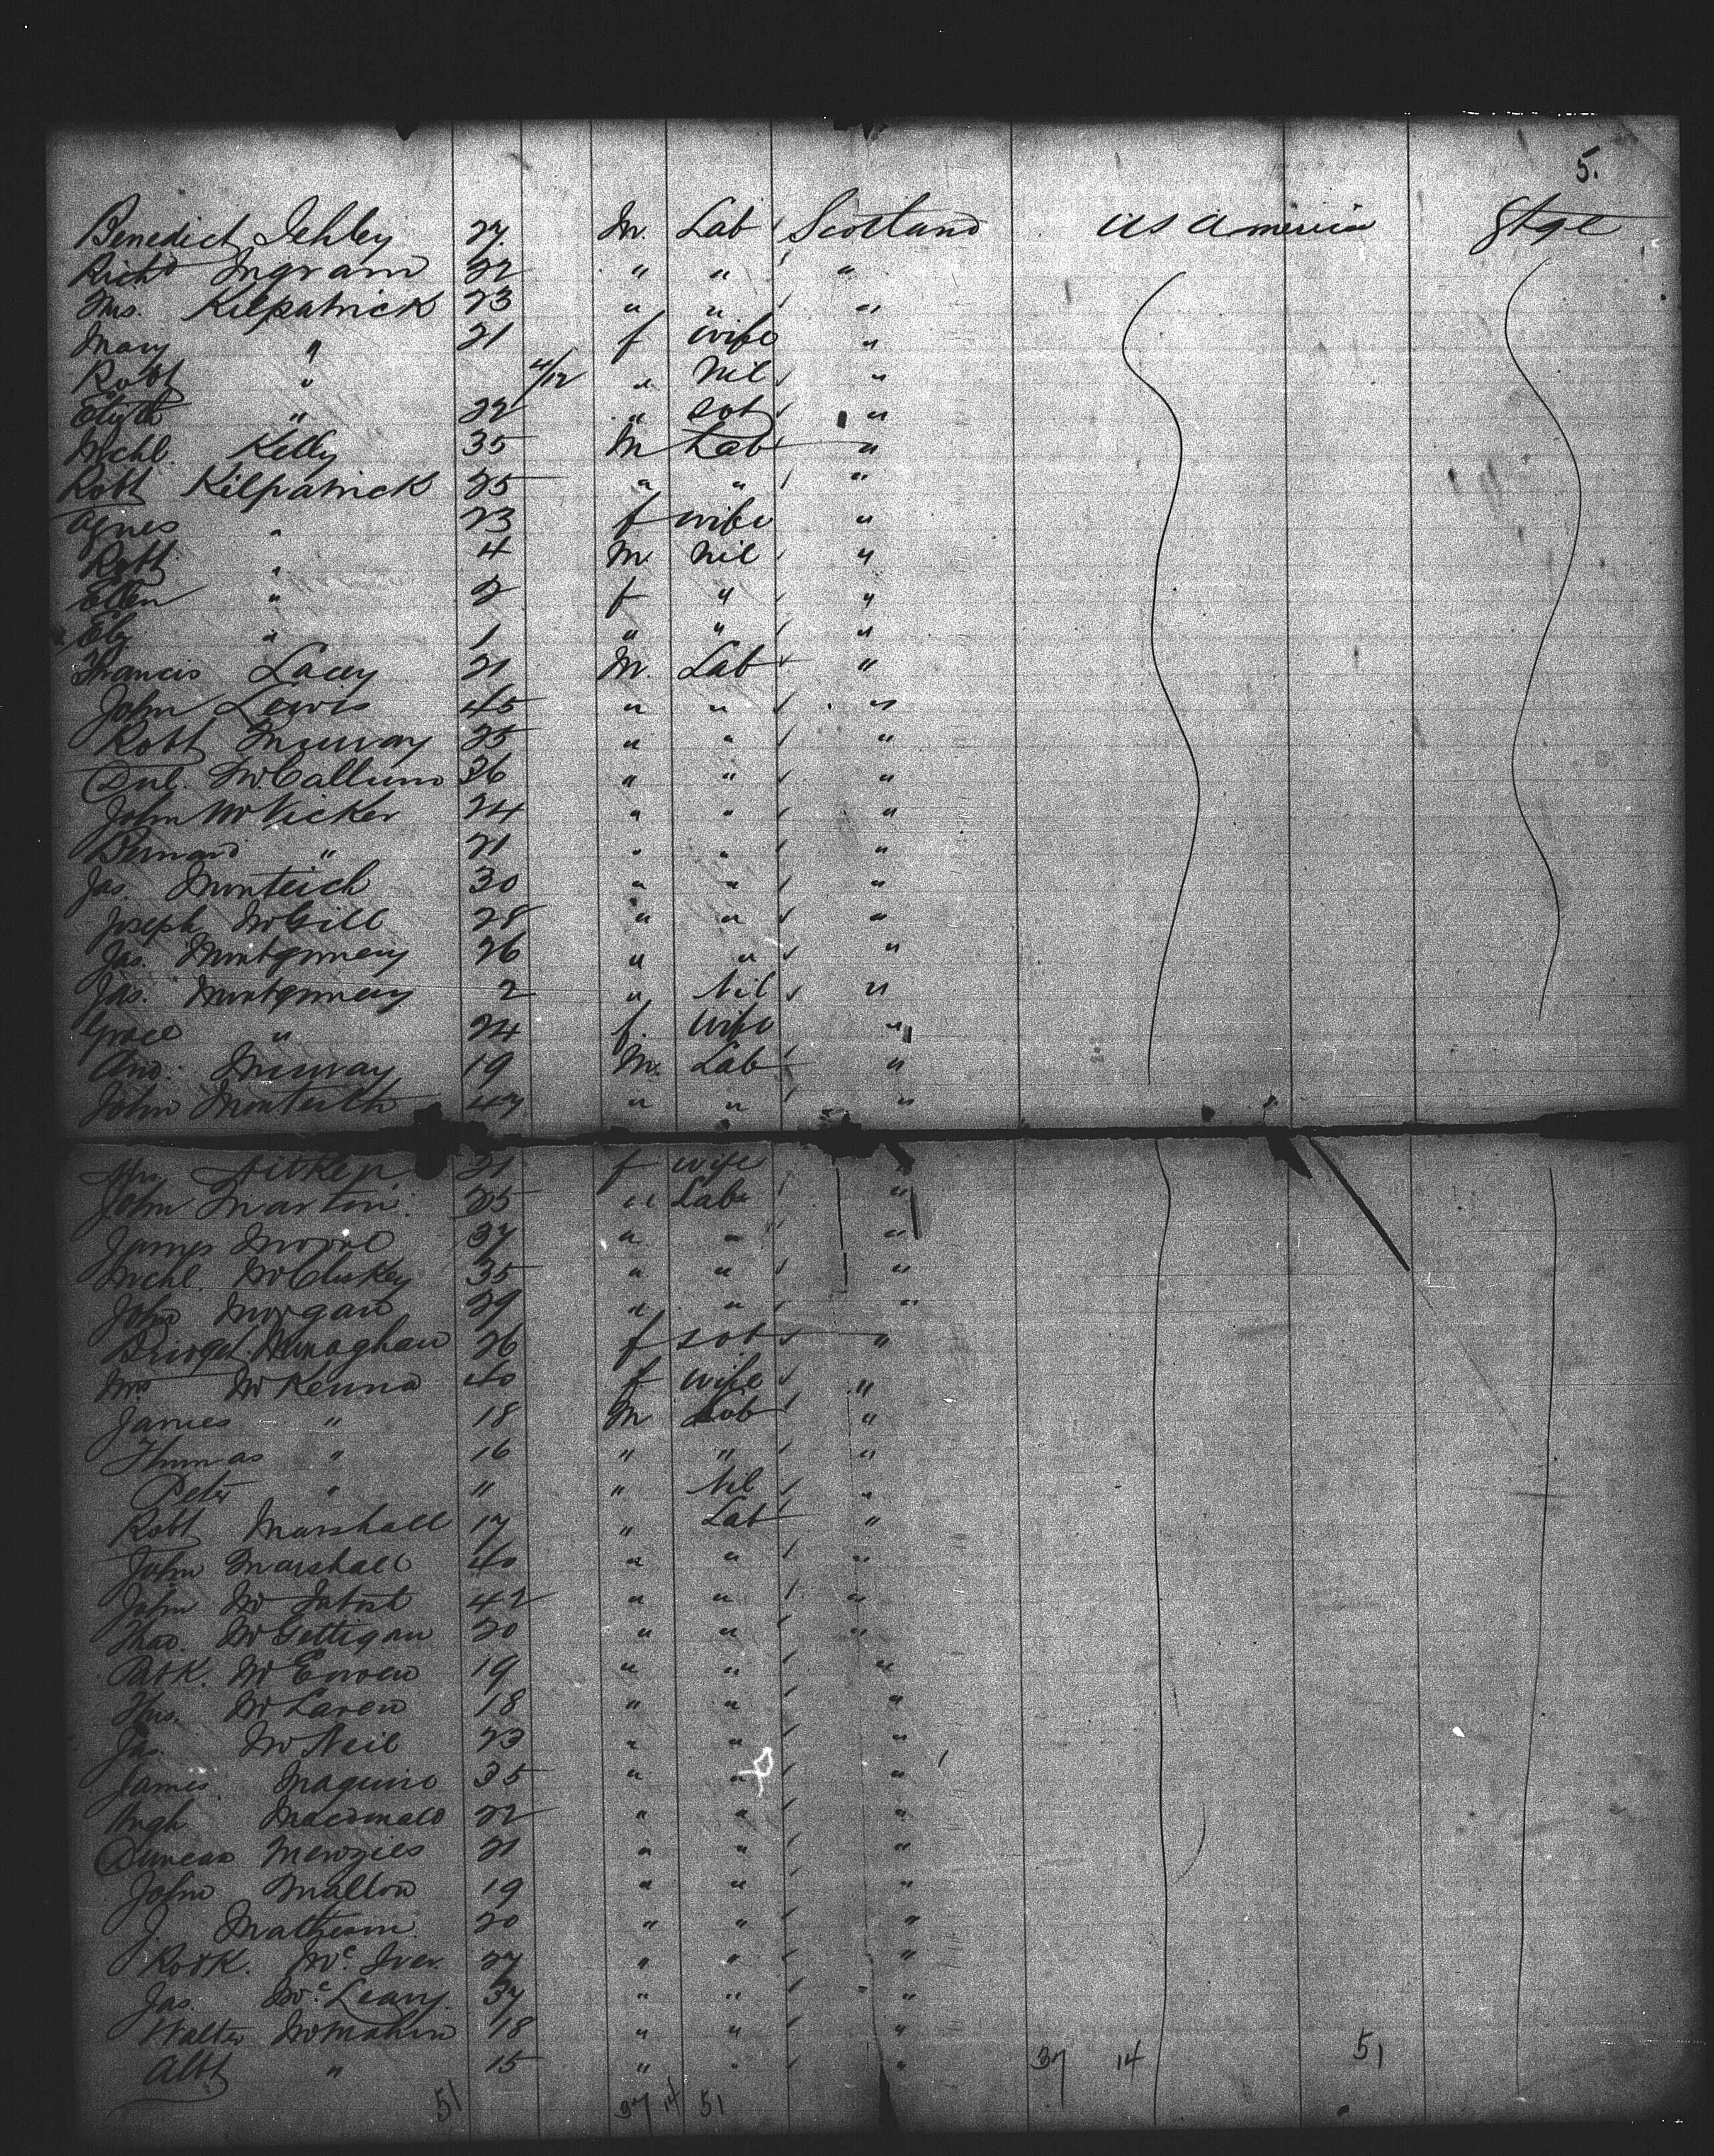 5.
Benedict Ichley 27. M. Lab Scotland U S America Stge
Richd Ingram 22 " " "
Ths. Kilpatrick 23 " " "
Mary " 21 f wife "
Robt " 4/12 " Nil "
Elizth " 22 " sob "
Mchl. Kelly 35 M Lab "
Robt Kilpatrick 25 " " "
Agnes " 23 f wife "
Robt " 4 M. Nil "
Ellen " 2 f " "
Eliz " 1 " " "
Francis Lacey 21 M. Lab "
John Lewis 45 " " "
Robt Murray 25 " " "
Dul. McCallum 26 " " "
John McVicker 24 " " "
Bernard " 21 " " "
Jas. Monteich 30 " " "
Joseph McGill 28 " " "
Jas. Montgomery 26 " " "
Jas. Montgomery 2 " Nil "
Grace " 24 f. Wife "
And. Murray 19 M. Lab "
John Monteith 47 " " "
Mrs Aitken 31 f wife "
John Martin. 25 " Lab "
James Moore 37 " " "
Mchl. McCluskey 35 " " "
John Morgan 29 " " "
Bridget Monaghan 26 f sob "
Mrs McKenna 40 f Wife "
James " 18 M Lob "
Thomas " 16 " " "
Peter " " " Nil "
Robt Marshall 17 " Lab "
John Marshall 40 " " "
John Mc 42 " " "
Thos. McGettigan 20 " " "
Patk. McEwen 19 " " "
Ths. McLaren 18 " " "
Jas. McNeil 23 " " "
James. Maguire 35 " " "
Hugh Macdonald 22 " " "
Duncan Menzies 21 " " "
John Mallon 19 " " "
J. Matheson. 20 " " "
Rodk. Mc. Iver. 27 " " "
Jas. Mc. Leary. 37 " " "
Walter McMahon 18 " " "
Albt " 15 " " " 37 14 51
51 37 14 51